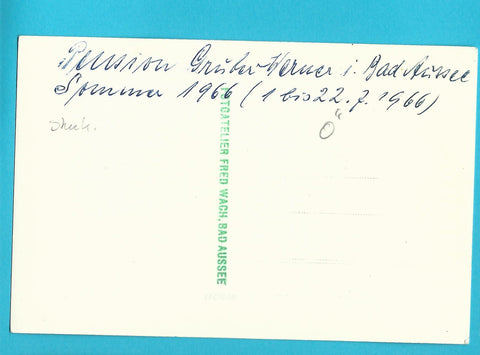 Pension Gruber Kerner i. Bad Aussee
Sommer 1966 (1 bis 22. 7. 1966)
Stmk.
Ö
FOTOATELIER FRED WACH, BAD AUSSEE